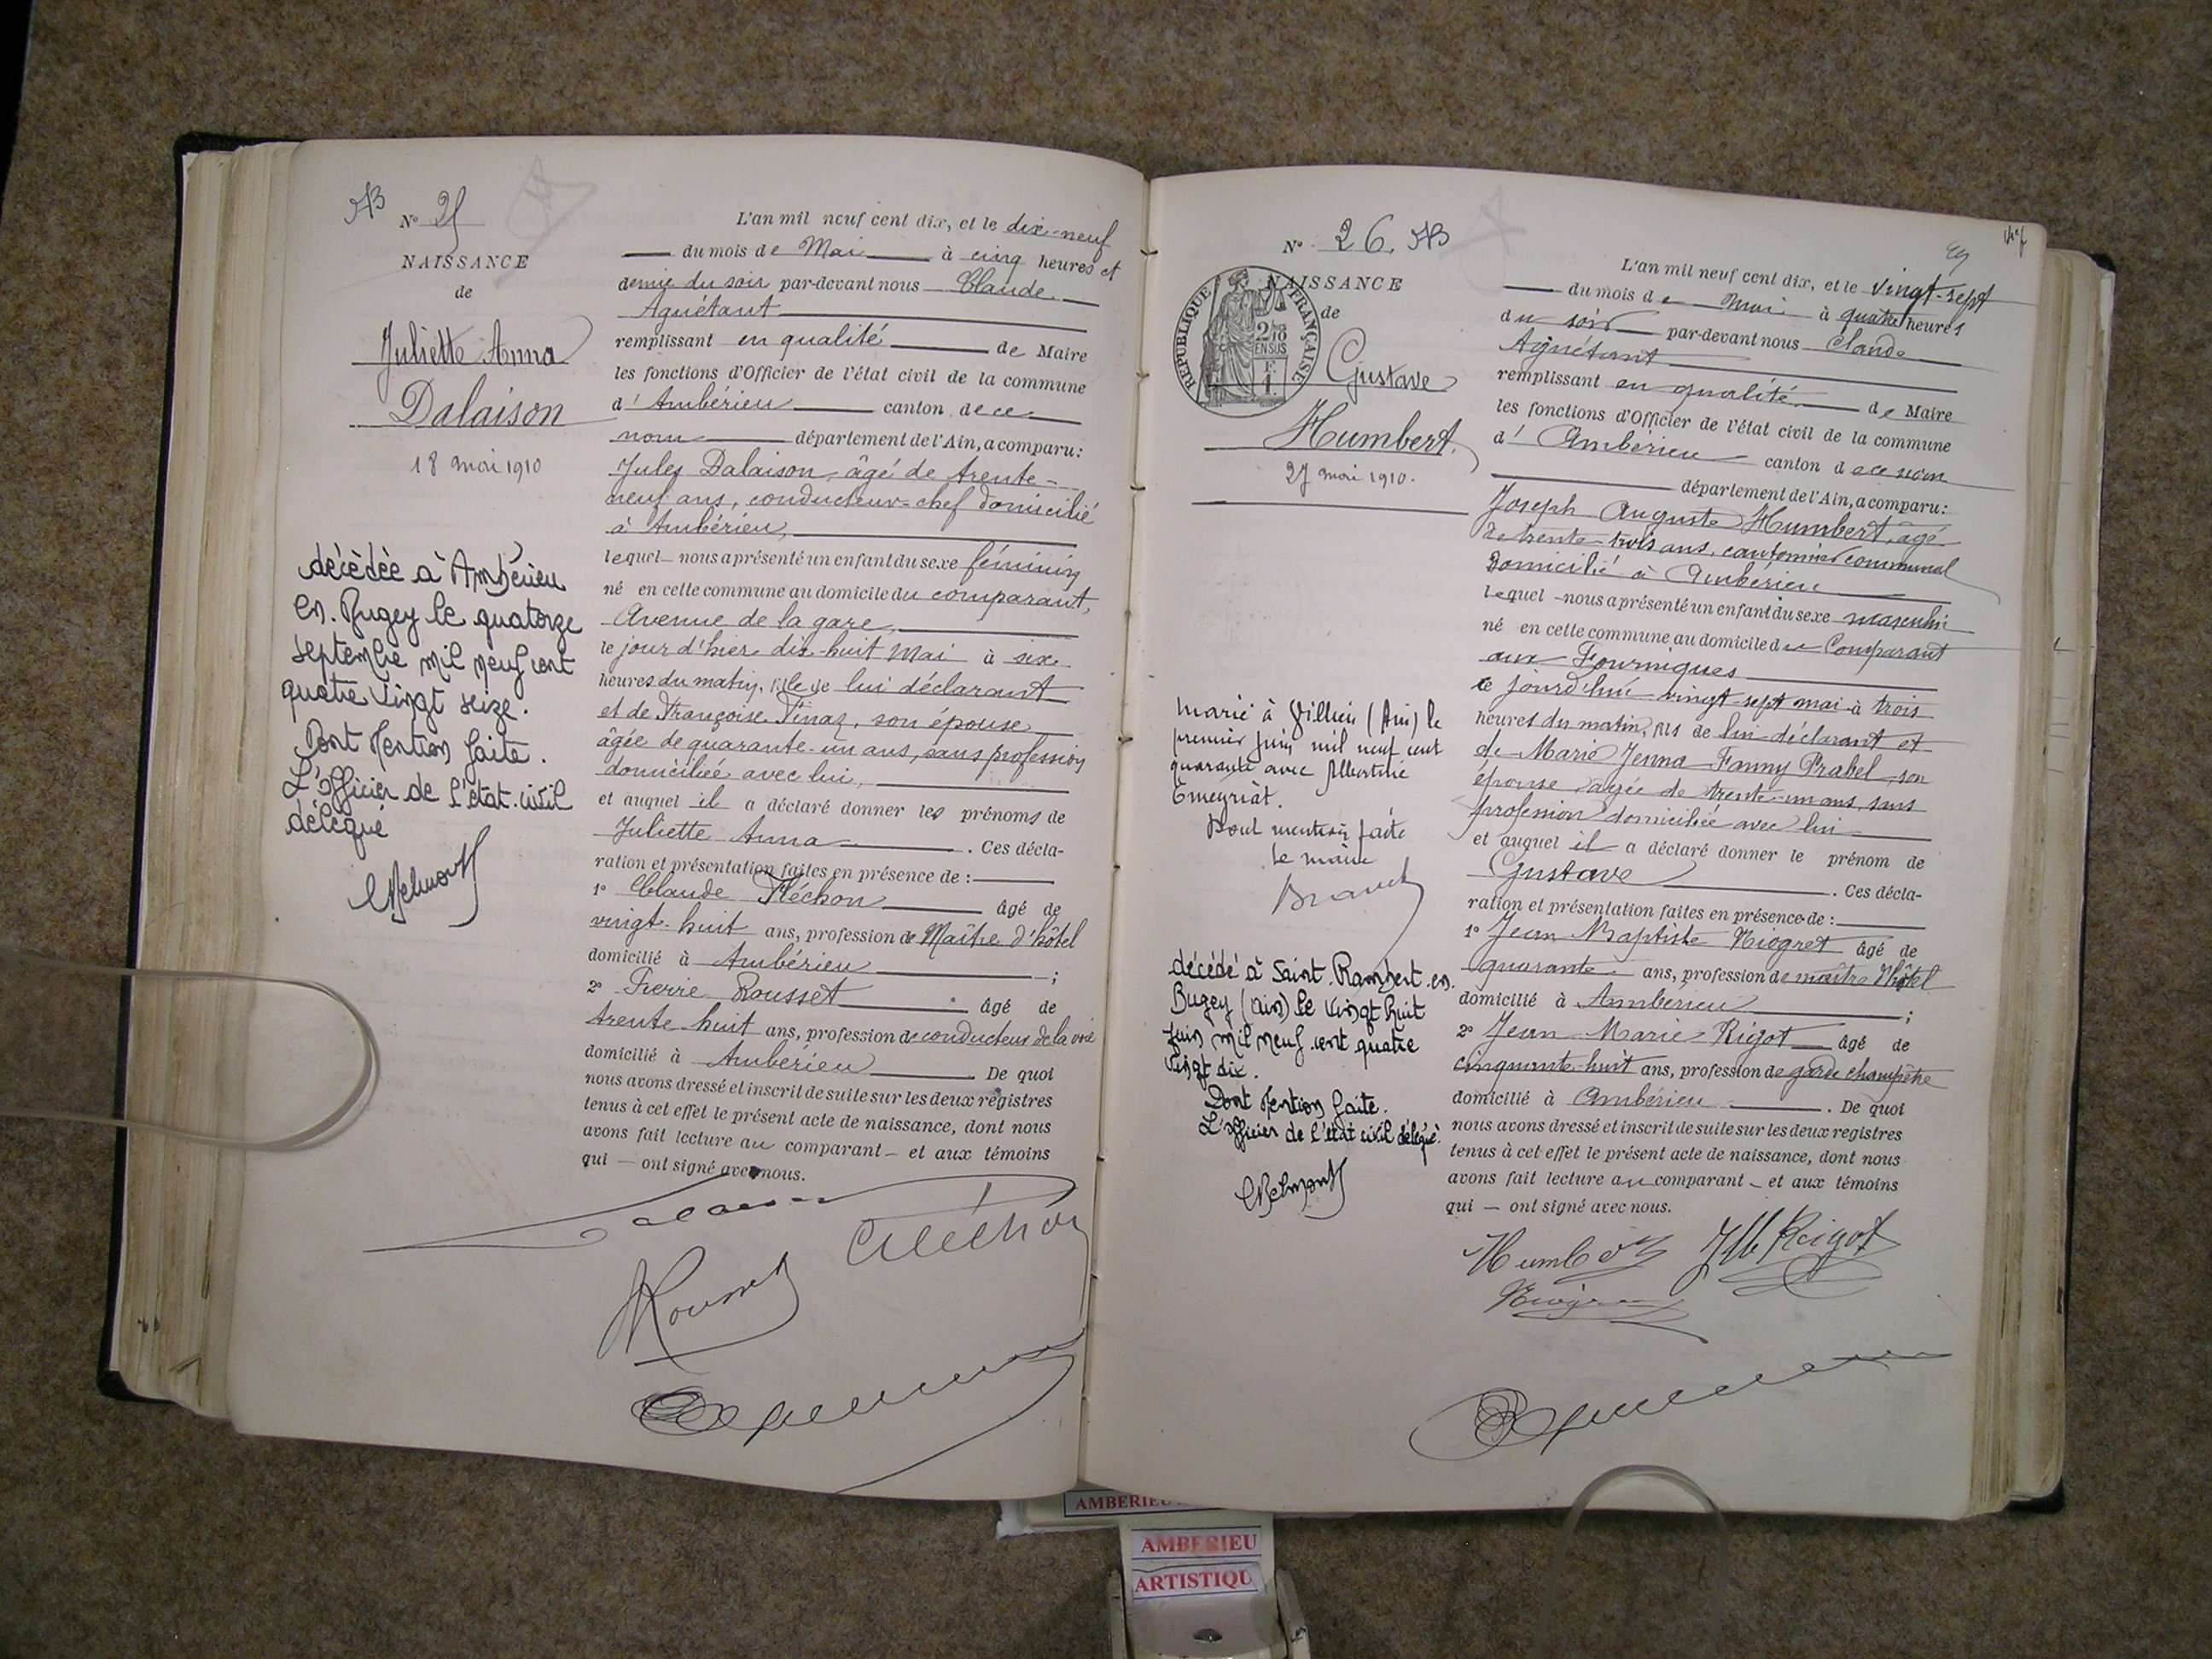 N° 25
NAISSANCE
de
Juliette Anna
Dalaison
18 mai 1910
décédée à Ambérieu
en. Bugey le quatorze
septembre mil neuf cent
quatre vingt seize.
Dont Mention faite.
L'officier de l'état.civil
délégué
L'an mil neuf cent dix, et le dix-neuf
du mois de Mai à cinq heures et
demie du soir par-devant nous Claude
Aguétant
remplissant en qualité de Maire
les fonctions d'Officier de l'état civil de la commune
d'Ambérieu canton de ce
nom département de l'Ain, a comparu:
Jules Dalaison, âgé de trente-
neuf ans, conducteur-chef domicilié
à Ambérieu,
lequel nous a présenté un enfant du sexe féminin
né en cette commune au domicile du comparant,
Avenue de la gare,
le jour d'hier dix-huit Mai à six
heures du matin, fille de lui déclarant
et de Françoise Pinaz, son épouse
âgée de quarante-un ans, sans profession
domiciliée avec lui,
et auquel il a déclaré donner les prénoms de
Juliette Anna . Ces décla-
ration et présentation faites en présence de :
1° Claude Fléchon âgé de
vingt-huit ans, profession de Maître d'hôtel
domicilié à Ambérieu ;
2° Pierre Rousset âgé de
trente huit ans, profession de conducteur de la voie
domicilié à Ambérieu . De quoi
nous avons dressé et inscrit de suite sur les deux registres
tenus à cet effet le présent acte de naissance, dont nous
avons fait lecture au comparant et aux témoins
qui ont signé avec nous.
N° 26.
NAISSANCE
de
REPUBLIQUE FRANÇAISE
2/10
EN SUS
Gustave
Humbert.
27 mai 1910.
marié à Villieu (Ain) le
premier juin mil neuf cent
quarante avec Albertine
Emeyriat.
Dont mention faite
Le maire
décédé à Saint.Rambert.en.
Bugey (ain) le vingt huit
Juin mil neuf cent quatre
vingt dix.
Dont Mention faite.
L'officier de l'état civil délégué.
L'an mil neuf cent dix, et le vingt-sept
du mois de mai à quatre heures
du soir par-devant nous Claude
Aguétant
remplissant en qualité de Maire
les fonctions d'Officier de l'état civil de la commune
d'Ambérieu canton de ce nom
département de l'Ain, a comparu:
Joseph Auguste Humbert, âgé
de trente-trois ans, cantonnier communal
Domicilié à Ambérieu
lequel nous a présenté un enfant du sexe masculin
né en cette commune au domicile du Comparant
aux Fourniques
ce jourd'hui vingt-sept mai à trois
heures du matin, fils de lui déclarant et
de Marie Jenna Fanny Prabel, son
épouse âgée de trente-un ans, sans
profession domiciliée avec lui
et auquel il a déclaré donner le prénom de
Gustave . Ces décla-
ration et présentation faites en présence de :
1° Jean Baptiste Niogret âgé de
quarante ans, profession de maître d'hôtel
domicilié à Ambérieu ;
2° Jean Marie Rigot âgé de
cinquante-huit ans, profession de garde champêtre
domicilié à Ambérieu . De quoi
nous avons dressé et inscrit de suite sur les deux registres
tenus à cet effet le présent acte de naissance, dont nous
avons fait lecture au comparant et aux témoins
qui ont signé avec nous.
Humbert
JM Rigot
AMBERIEU
AMBERIEU
ARTISTIQU